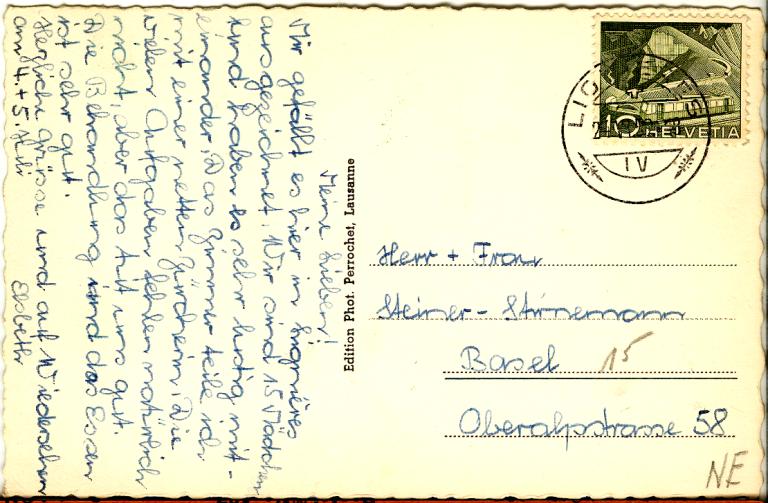 Meine Lieben!
Mir gefällt es hier in Lugnières
ausgezeichnet. Wir sind 15 Mädchen
und haben es sehr lustig mit-
einander. Das Zimmer teile ich
mit einer netten Zürcherin. Die
vielen Aufgaben fehlen natürlich
nicht, aber das tut uns gut.
Die Behandlung und das Essen
ist sehr gut.
Herzliche Grüsse und auf Wiedersehen
am 4.+5. Juli
Elsbeth
Edition Phot. Perrochet, Lausanne
10 HELVETIA
IV
Herr + Frau
Steiner-Stürnemann
Basel 15
Oberalpstrasse 58
NE